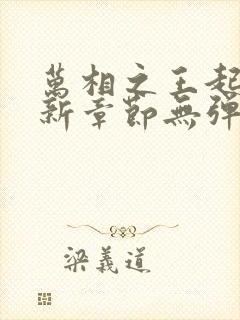 萬相之王起
新章節無彈
梁義道